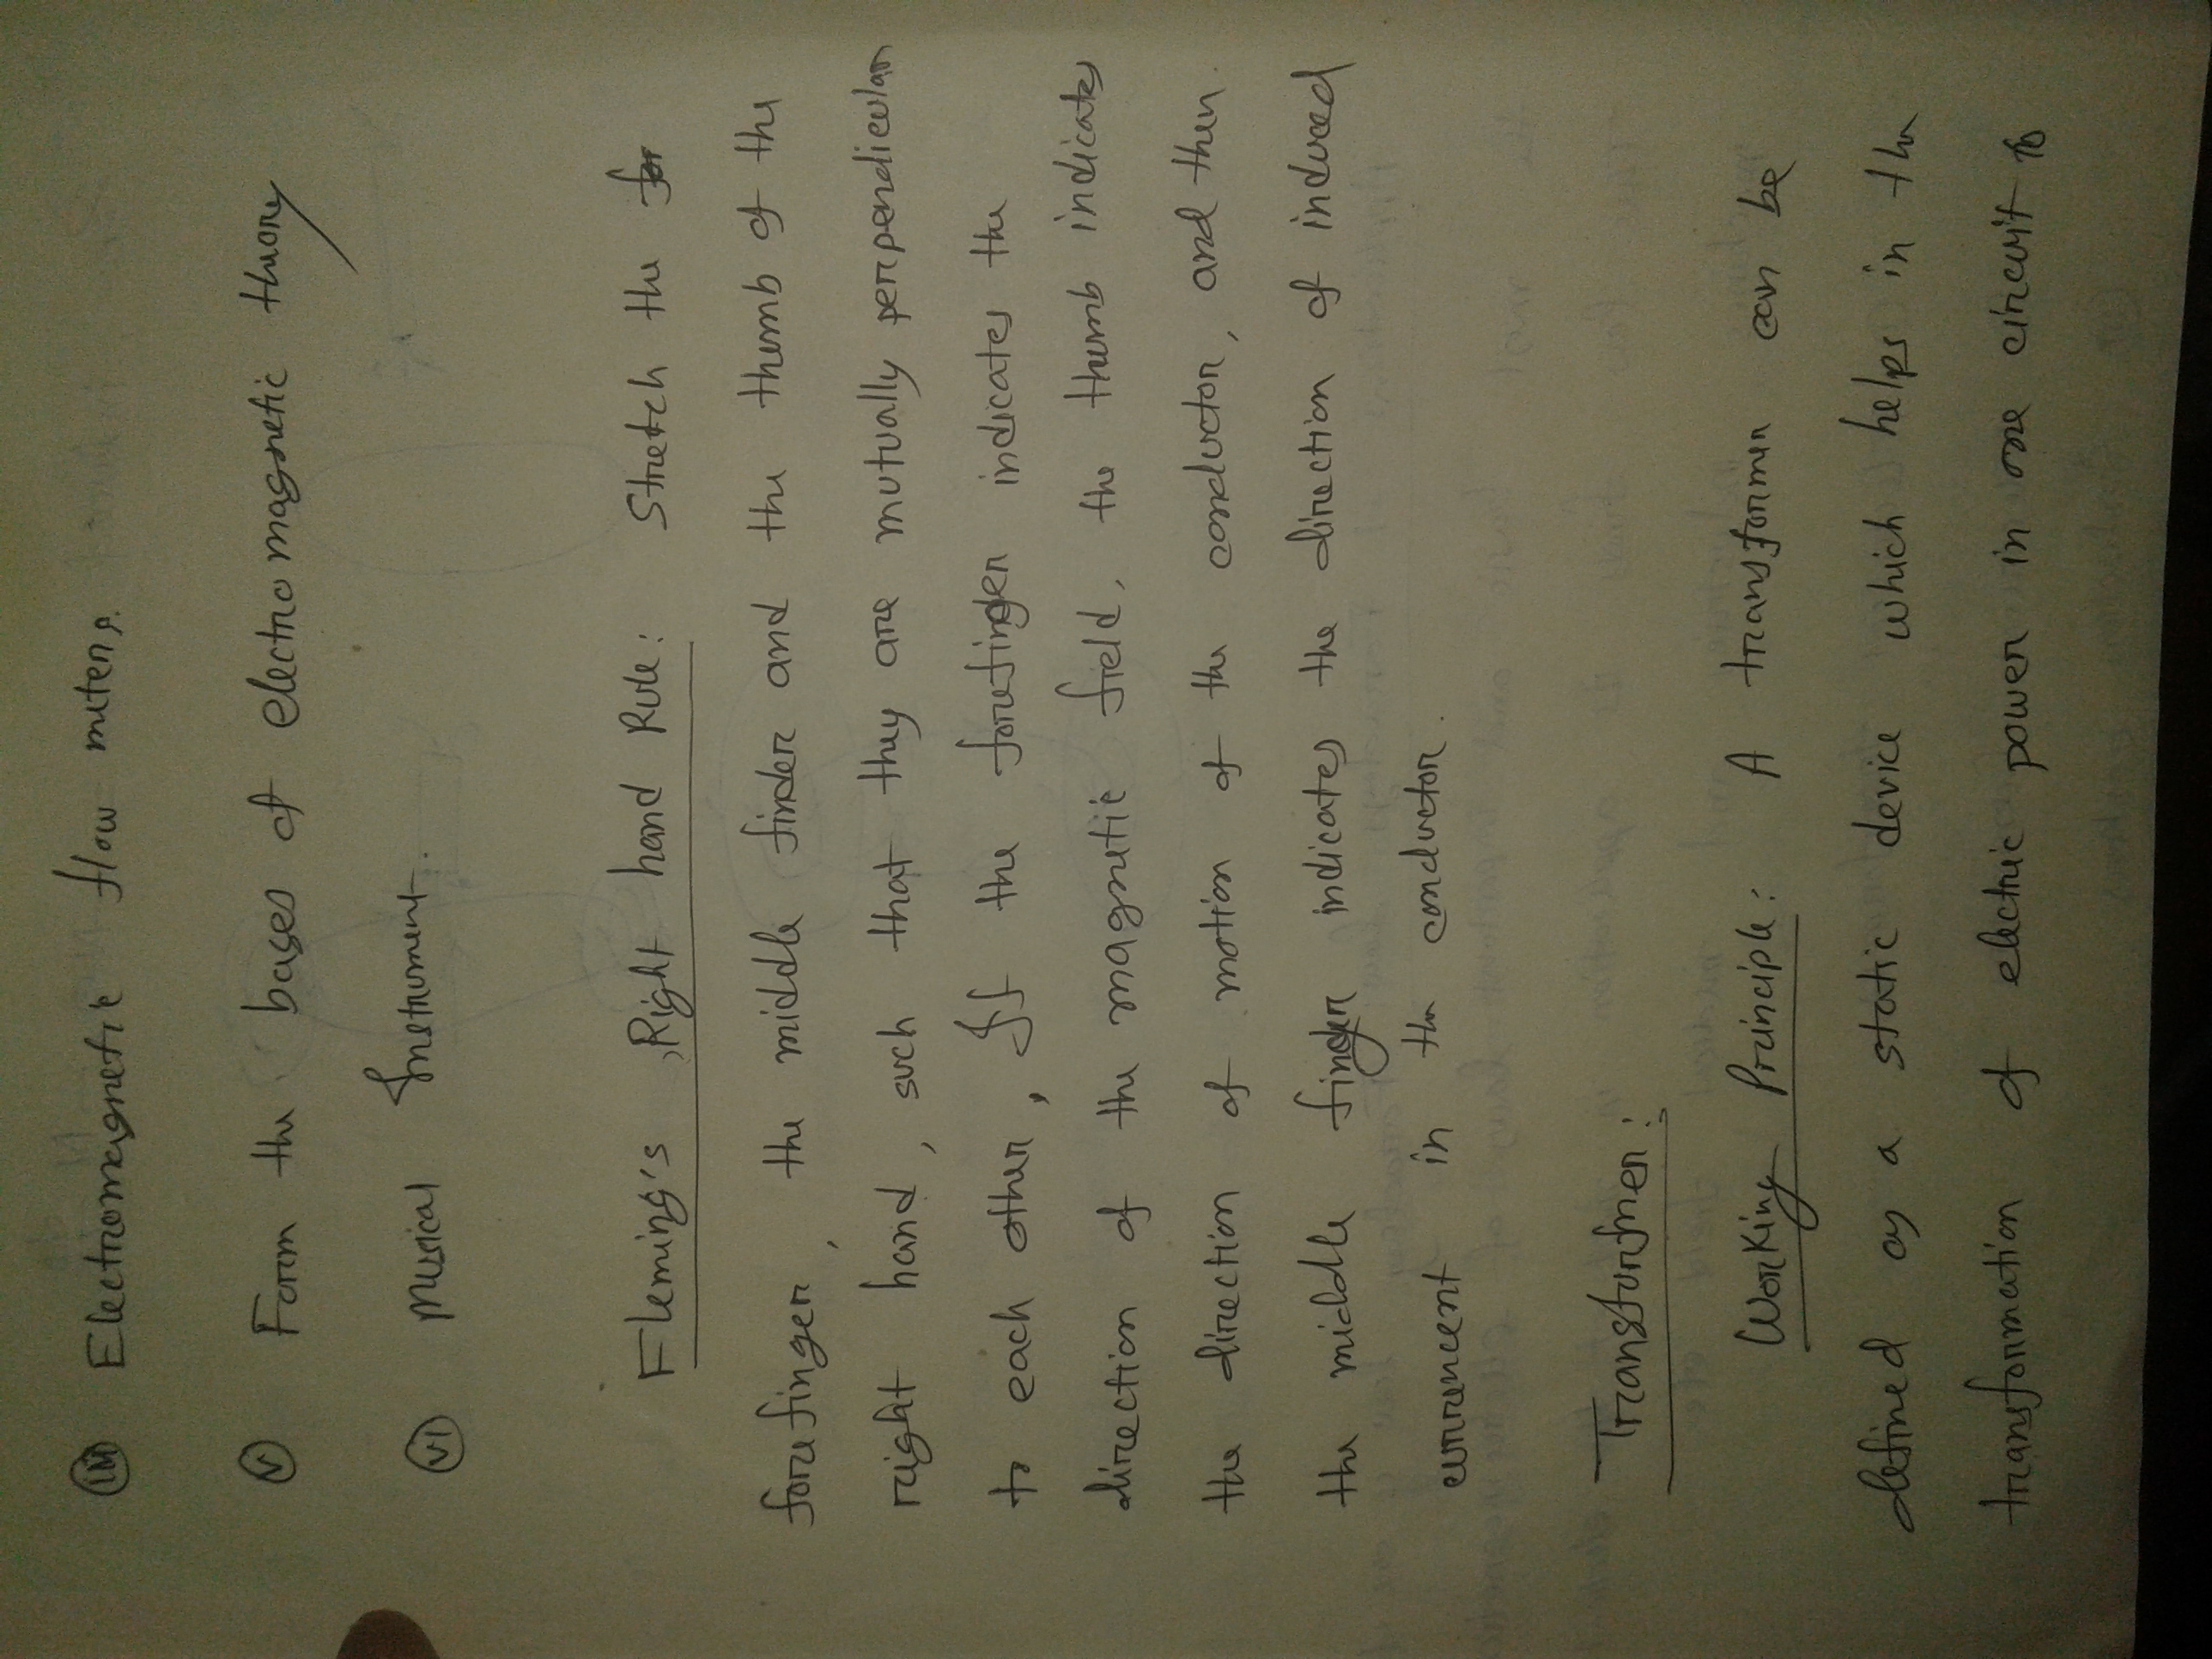 (iv) Electromagnetic flow meters.
(v) Form the bases of electromagnetic theory
(vi) Musical Instrument.
Fleming's Right hand Rule: Stretch the for
forefinger, the middle finder and the thumb of the
right hand, such that they are mutually perpendicular
to each other, If the forefinger indicates the
direction of the magnetic field, the thumb indicates
the direction of motion of the conductor, and then
the middle finger indicates the direction of induced
currencent in the conductor.
Transformer:
Working Principle: A transformer can be
defined as a static device which helps in the
transformation of electric power in one circuit to